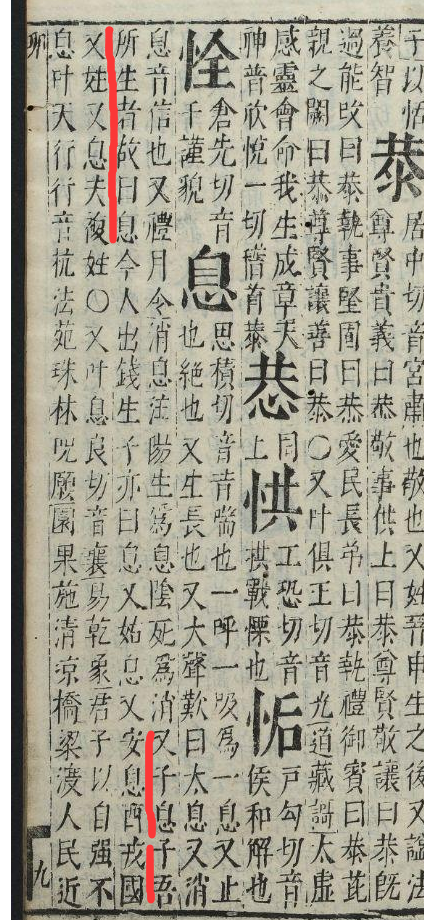 子以恬
養智
恭
居中切音宮肅也敬也又姓晉申生之後又謚法
尊賢貴義曰恭敬事供上曰恭尊賢敬讓曰恭旣
過能改曰恭執事堅固曰恭愛民長弟曰恭執禮御賓曰恭芘
親之闕曰恭尊賢讓善曰恭〇又叶俱王切音光道藏謌太虛
感靈會命我生成章天
神普欣悅一切稽首恭
同
上
㤨
工恐切音
拱戰慄也
㤧
戸勾切音
侯和解也
恮
倉先切音
千謹貌
息
思積切音昔喘也一呼一吸爲一息又止
也絶也又生長也又大聲歎曰太息又消
息音信也又禮月令消息注陽生爲息陰死爲消又子息子吾
所生者故曰息今人出錢生子亦曰息又姑息又安息西戎國
又姓又息夫複姓〇又叶息良切音襄易乾象君子以自強不
息叶天行行音杭法苑珠林呪願園果施清涼橋梁渡人民近
九